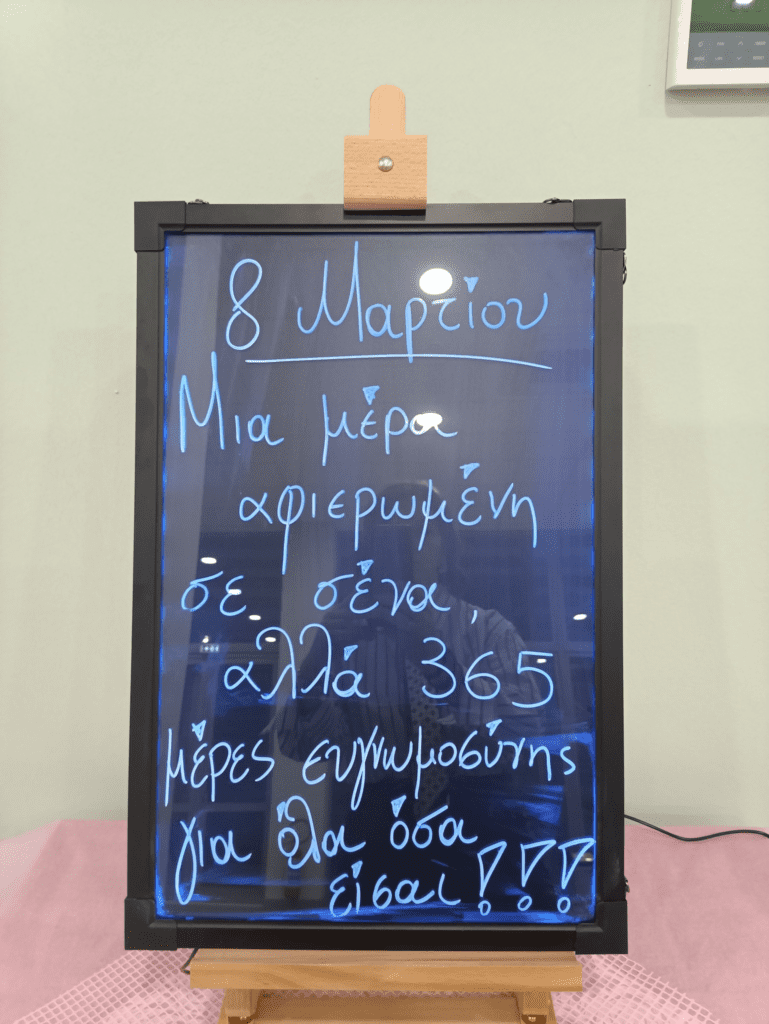 8 Μαρτίου
Μια μέρα
αφιερωμένη
σε σένα,
αλλά 365
μέρες ευγνωμοσύνης
για όλα όσα
είσαι!!!